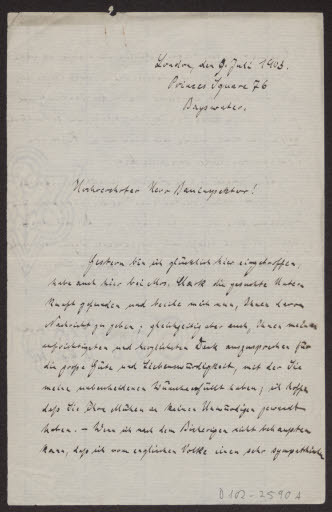 London, den 9. Juli 1903.
Princes Square 76
Bayswater.
Hochverehrter Herr Bauinspektor!
Gestern bin ich glücklich hier eingetroffen,
habe auch hier bei Mrs. Stark die gesuchte Unter-
kunft gefunden und beeile mich nun, Ihnen davon
Nachricht zu geben; gleichzeitig aber auch, Ihnen meinen
aufrichtigsten und herzlichsten Dank auszusprechen für
die große Güte und Liebenswürdigkeit, mit der Sie
meine unbescheidenen Wünsche erfüllt haben; ich hoffe
daß Sie Ihre Mühen an keinen Unwürdigen gewandt
haben. – Wenn ich nach dem Bisherigen nicht behaupten
kann, daß ich vom englischen Volke einen sehr sympathischen
D 102-2590 A